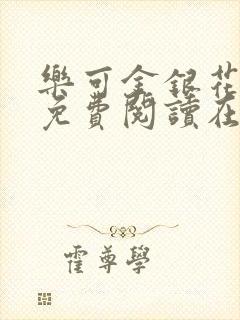 樂可金銀花
免費閱讀在
霍尊學